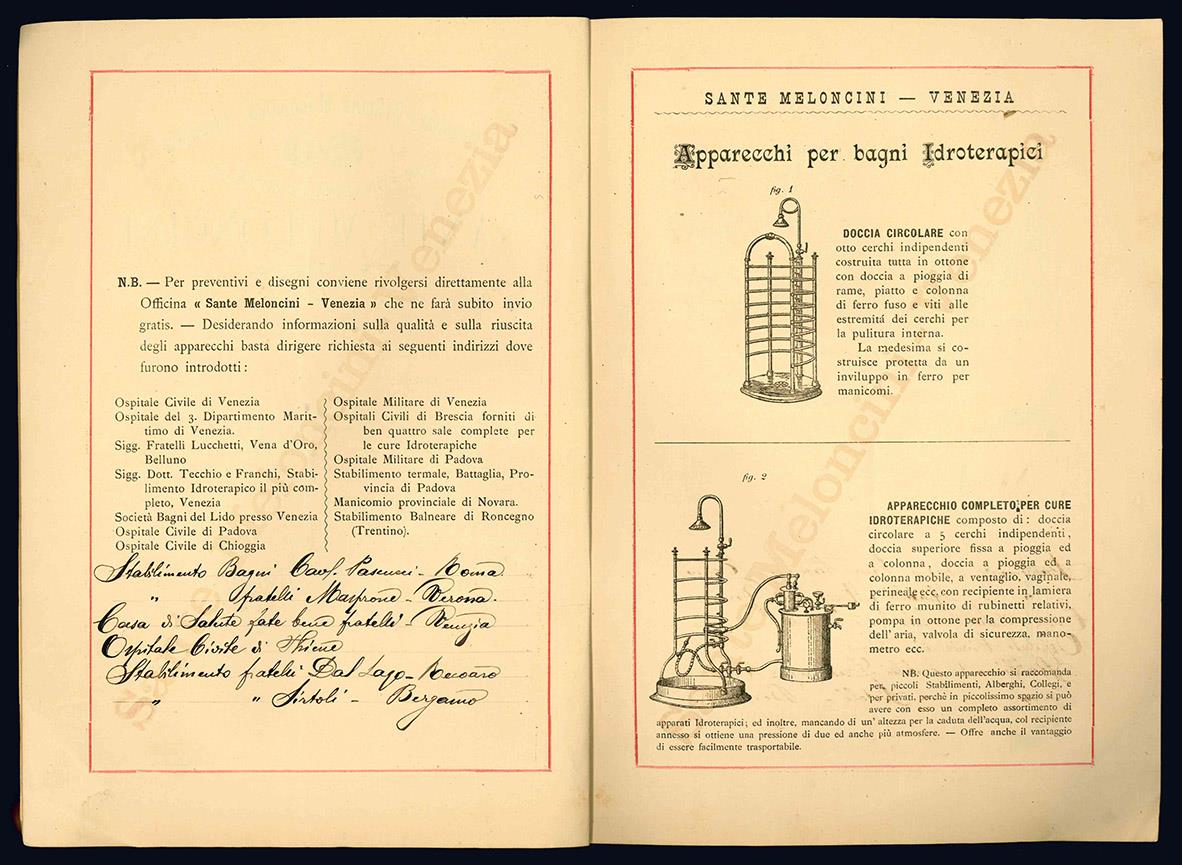 N.B. — Per preventivi e disegni conviene rivolgersi direttamente alla
Officina « Sante Meloncini - Venezia » che ne farà subito invio
gratis. — Desiderando informazioni sulla qualità e sulla riuscita
degli apparecchi basta dirigere richiesta ai seguenti indirizzi dove
furono introdotti :
Ospitale Civile di Venezia
Ospitale del 3. Dipartimento Marit-
timo di Venezia.
Sigg. Fratelli Lucchetti, Vena d'Oro,
Belluno
Sigg. Dott. Tecchio e Franchi, Stabi-
limento Idroterapico il più com-
pleto, Venezia
Società Bagni del Lido presso Venezia
Ospitale Civile di Padova
Ospitale Civile di Chioggia
Ospitale Militare di Venezia
Ospitali Civili di Brescia forniti di
ben quattro sale complete per
le cure Idroterapiche
Ospitale Militare di Padova
Stabilimento termale, Battaglia, Pro-
vincia di Padova
Manicomio provinciale di Novara.
Stabilimento Balneare di Roncegno
(Trentino).
Stabilimento Bagni Cav. - Roma
" fratelli - Verona.
Casa di Salute fate bene fratelli - Venezia
Ospitale Civile di Thiene
Stabilimento fratelli Dal Lago - Recoaro
" " Sirtoli - Bergamo
SANTE MELONCINI — VENEZIA
Apparecchi per bagni Idroterapici
fig. 1
DOCCIA CIRCOLARE con
otto cerchi indipendenti
costruita tutta in ottone
con doccia a pioggia di
rame, piatto e colonna
di ferro fuso e viti alle
estremitá dei cerchi per
la pulitura interna.
La medesima si co-
struisce protetta da un
inviluppo in ferro per
manicomi.
fig. 2
APPARECCHIO COMPLETO PER CURE
IDROTERAPICHE composto di : doccia
circolare a 5 cerchi indipendenti,
doccia superiore fissa a pioggia ed
a colonna, doccia a pioggia ed a
colonna mobile, a ventaglio, vaginale,
perineale ecc, con recipiente in lamiera
di ferro munito di rubinetti relativi,
pompa in ottone per la compressione
dell'aria, valvola di sicurezza, mano-
metro ecc.
NB. Questo apparecchio si raccomanda
per piccoli Stabilimenti, Alberghi, Collegi, e
per privati, perchè in piccolissimo spazio si può
avere con esso un completo assortimento di
apparati Idroterapici ; ed inoltre, mancando di un' altezza per la caduta dell'acqua, col recipiente
annesso si ottiene una pressione di due ed anche più atmosfere. — Offre anche il vantaggio
di essere facilmente trasportabile.
Sante Meloncini Venezia
Sante Meloncini Venezia